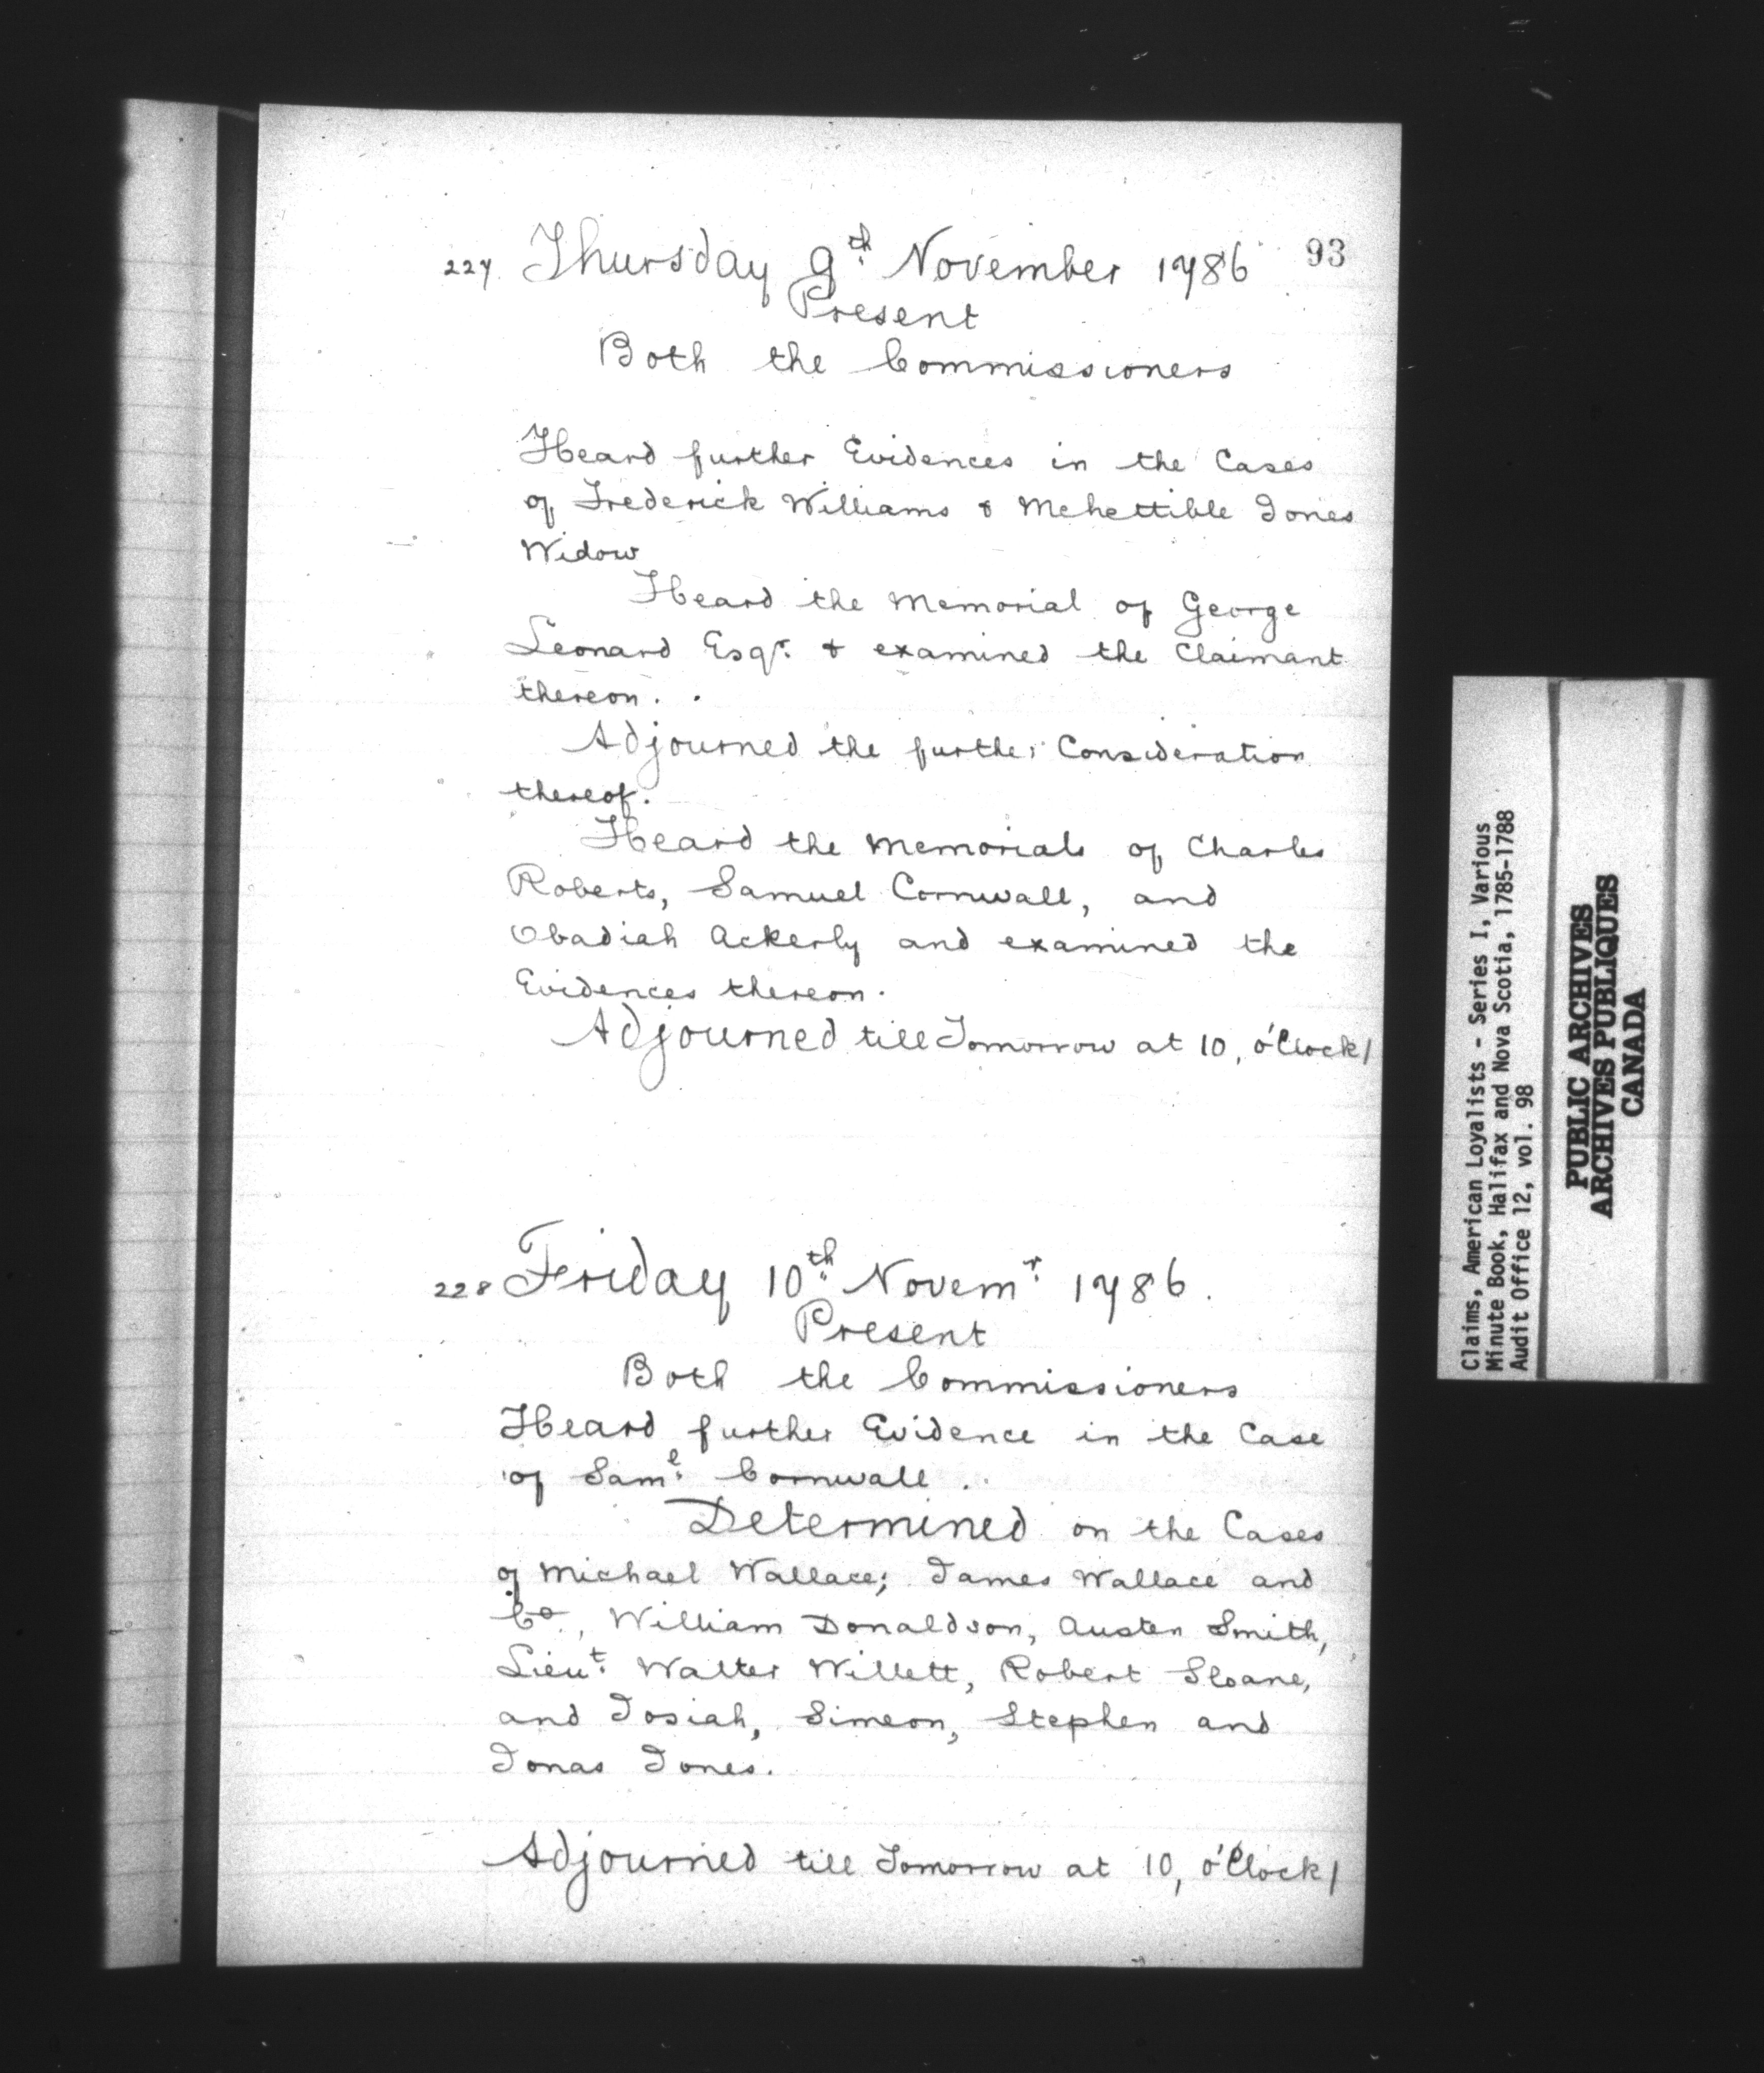 227. Thursday 9th. November 1786 93
Present
Both the Commissioners
Heard further Evidences in the Cases
of Frederick Williams & Mehettible Jones
Widow
Heard the Memorial of George
Leonard Esqr. & examined the Claimant
thereon.
Adjourned the further Consideration
thereof.
Heard the Memorials of Charles
Roberts, Samuel Cornwall, and
Obadiah Ackerly and examined the
Evidences thereon.
Adjourned till Tomorrow at 10, o'Clock/
228 Friday 10th. Novemr. 1786.
Present
Both the Commissioners
Heard further Evidence in the Case
of Saml. Cornwall.
Determined on the Cases
of Michael Wallace; James Wallace and
Co, William Donaldson, Austen Smith,
Lieut. Walter Willett, Robert Sloane,
and Josiah, Simeon, Stephen and
Jonas Jones.
Adjourned till Tomorrow at 10, o'Clock/
Claims, American Loyalists - Series I, Various
Minute Book, Halifax and Nova Scotia, 1785-1788
Audit Office 12, vol. 98
PUBLIC ARCHIVES
ARCHIVES PUBLIQUES
CANADA